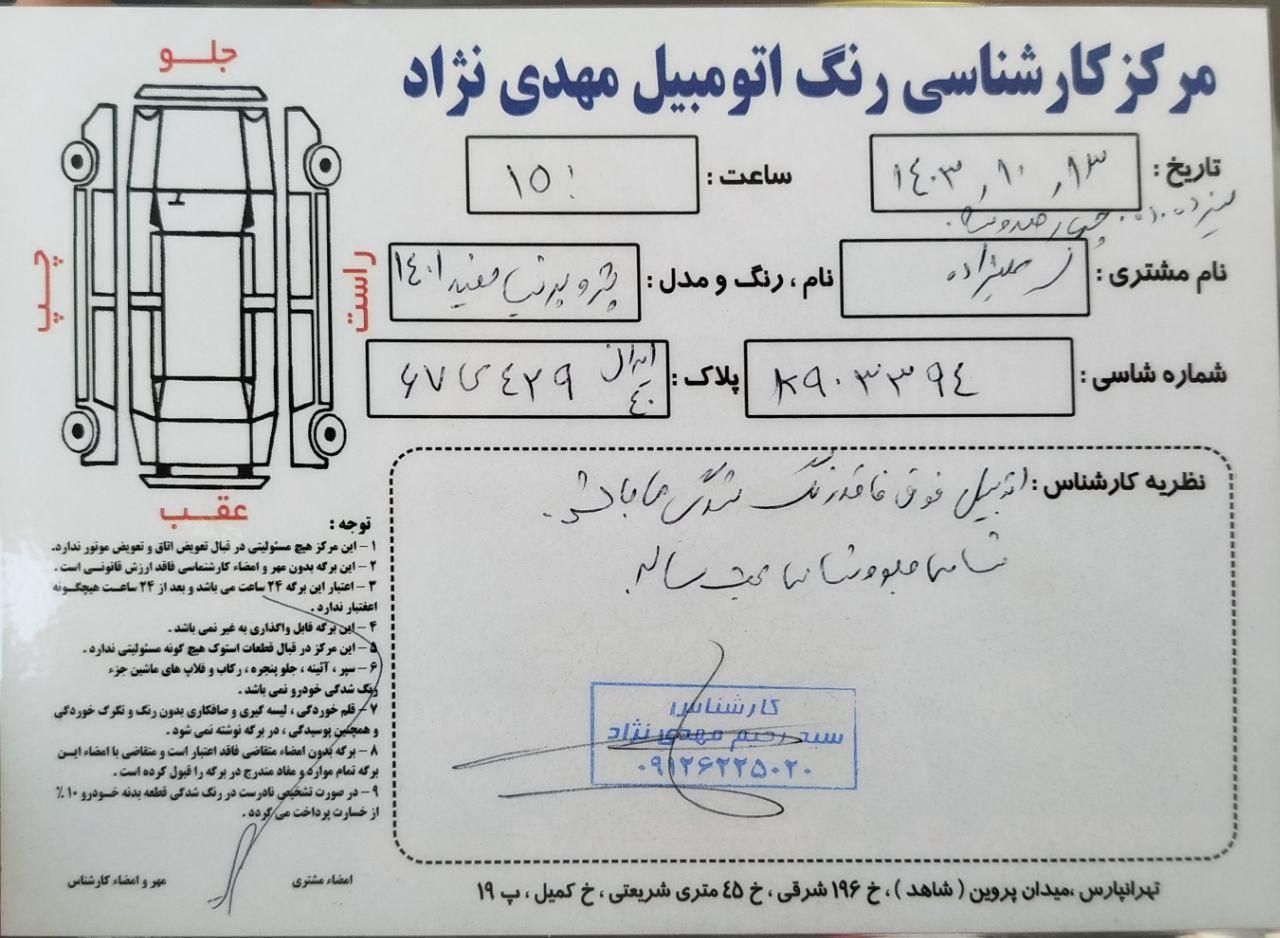 مرکز کارشناسی رنگ اتومبیل مهدی نژاد
تاریخ : ۱۴۰۳/۱۰/۱۳
ساعت : ۱۵:
نام مشتری :
نام ، رنگ و مدل : پژو پرشیا سفید ۱۴۰۱
شماره شاسی : ۸۹۰۳۳۹۴
پلاک : ایران ۴۰ ۴۲۹ ی ۶۷
نظریه کارشناس : اتومبیل فوق فاقد رنگ شدگی می باشد.
شاسی جلو و شاسی عقب سالم
کارشناس
سید رحیم مهدی نژاد
۰۹۱۲۶۲۲۵۰۲۰
جلـــو
چــپ
راست
عقـــب
توجه :
۱ – این مرکز هیچ مسئولیتی در قبال تعویض اتاق و تعویض موتور ندارد.
۲ – این برگه بدون مهر و امضاء کارشناسی فاقد ارزش قانونـی است .
۳ – اعتبار این برگه ۲۴ ساعت می باشد و بعد از ۲۴ ساعـت هیچگـونه
اعتبار ندارد .
۴ – این برگه قابل واگذاری به غیر نمی باشد .
۵ – این مرکز در قبال قطعات استوک هیچ گونه مسئولیتی ندارد .
۶ – سپر ، آئینه ، جلو پنجره ، رکاب و فلاپ های ماشین جزء
رنگ شدگی خودرو نمی باشد .
۷ – قلم خوردگی ، لیسه گیری و صافکاری بدون رنگ و تگرگ خوردگی
و همچنین پوسیدگی ، در برگه نوشته نمی شود .
۸ – برگه بدون امضاء متقاضی فاقد اعتبار است و متقاضی با امضاء ایـن
برگه تمام موارد و مفاد مندرج در برگه را قبول کرده است .
۹ – در صورت تشخیص نادرست در رنگ شدگی قطعه بدنه خـودرو ۱۰ ٪
از خسارت پرداخت می گردد .
امضاء مشتری
مهر و امضاء کارشناس
تهرانپارس ،میدان پروین ( شاهد ) ، خ ۱۹۶ شرقی ، خ ۴۵ متری شریعتی ، خ کمیل ، پ ۱۹